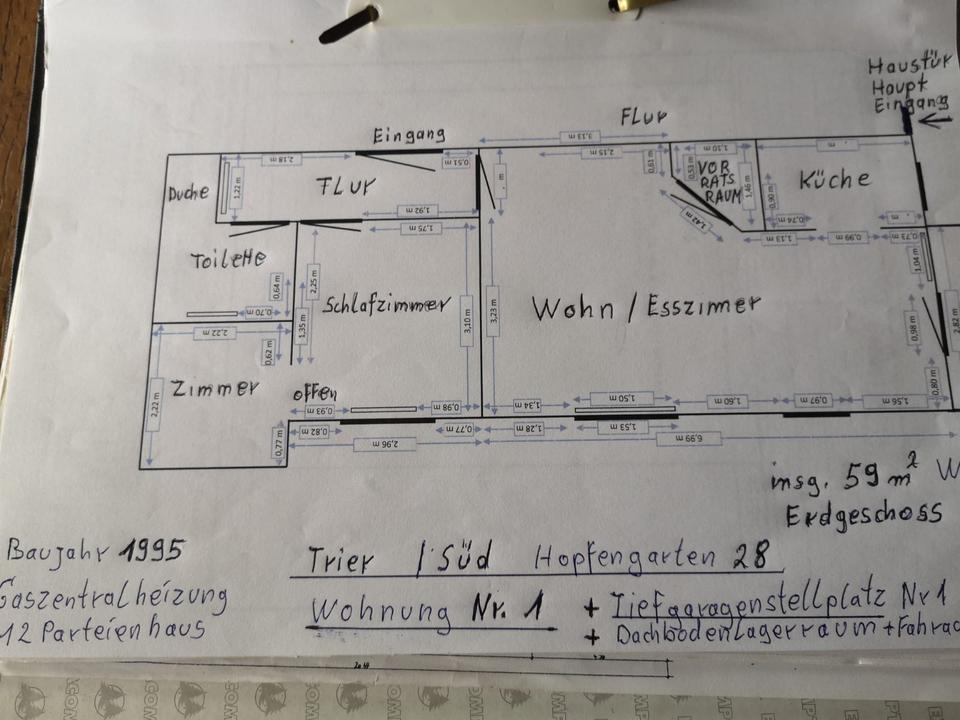 Haustür
Haupt
Eingang
Flur
Eingang
3,13 m
2,18 m
0,51 m
m
2,15 m
0,61 m
0,53 m
1,10 m
m
Duche
1,22 m
FLur
VOR
RATS
RAUM
1,46 m
0,90 m
Küche
1,92 m
1,75 m
1,42 m
0,74 m
m
1,13 m
0,99 m
0,73 m
Toilette
0,64 m
2,25 m
Schlafzimmer
3,10 m
3,23 m
Wohn / Esszimer
1,04 m
0,70 m
2,22 m
1,35 m
0,62 m
0,98 m
2,82 m
Zimmer
2,22 m
offen
0,93 m
0,98 m
1,34 m
1,50 m
1,60 m
0,97 m
1,56 m
0,80 m
0,77 m
0,82 m
2,96 m
0,77 m
1,28 m
1,53 m
6,99 m
insg. 59 m² W
Erdgeschoss
Baujahr 1995
Trier / Süd Hopfengarten 28
Gaszentralheizung
Wohnung Nr. 1 + Tiefgaragenstellplatz Nr 1
12 Parteienhaus
+ Dachbodenlagerraum + Fahrad